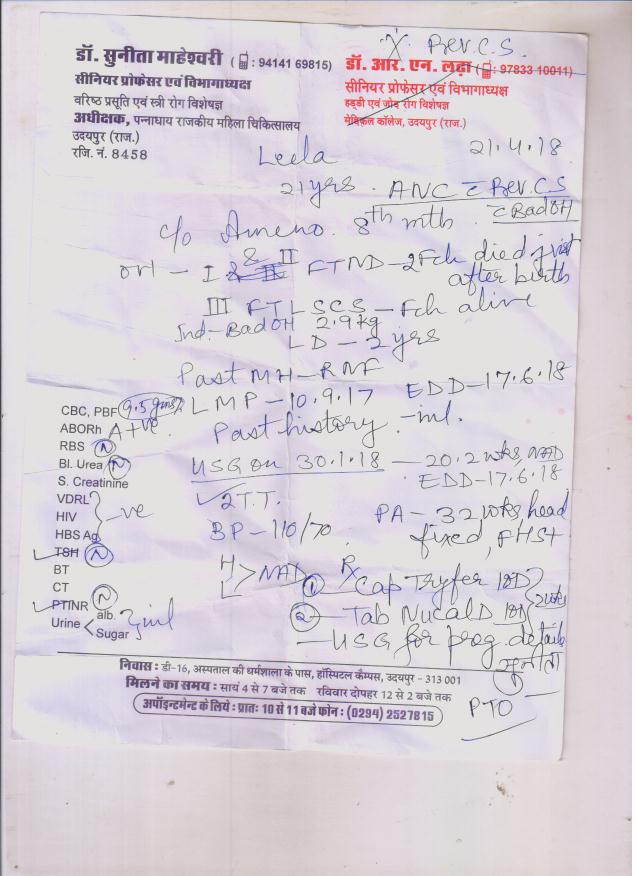 X Rev. C.S.
डॉ. सुनीता माहेश्वरी ( : 94141 69815)
सीनियर प्रोफेसर एवं विभागाध्यक्ष
वरिष्ठ प्रसूति एवं स्त्री रोग विशेषज्ञ
अधीक्षक, पन्नाधाय राजकीय महिला चिकित्सालय
उदयपुर (राज.)
रजि. नं. 8458
डॉ. आर. एन. लढ़ा ( : 97833 10011)
सीनियर प्रोफेसर एवं विभागाध्यक्ष
हड्डी एवं जोड़ रोग विशेषज्ञ
मेडिकल कॉलेज, उदयपुर (राज.)
Leela 21.4.18
21 yrs. ANC c Rev. C.S
c Bad OH
c/o Ameno. 8th mth
OH - I & II FTND - 2 Fch died just
after birth
III FT LSCS - Fch alive
Ind. - Bad OH 2.9 kg
LD - 2 yrs
Past MH - RNF
LMP - 10.9.17 EDD - 17.6.18
Past history - nil.
USG on 30.1.18 - 20.2 wks, NAD
EDD - 17.6.18
2 T.T.
BP - 110/70 PA - 32 wks, head
fixed, FHS+
H
L > NAD
Rx
① Cap Tryfer 1OD
② Tab Nucal D 1OD } 2 wks
- USG for preg. details
PTO
CBC, PBF 9.5 gms%
ABORh A+ve
RBS N
Bl. Urea N
S. Creatinine
VDRL
HIV -ve
HBS Ag
TSH N
BT
CT N
PTINR
Urine < alb.
Sugar } nil
निवास : डी-16, अस्पताल की धर्मशाला के पास, हॉस्पिटल कैम्पस, उदयपुर - 313 001
मिलने का समय : सायं 4 से 7 बजे तक रविवार दोपहर 12 से 2 बजे तक
अपॉइन्टमेन्ट के लिये : प्रातः 10 से 11 बजे फोन : (0294) 2527815